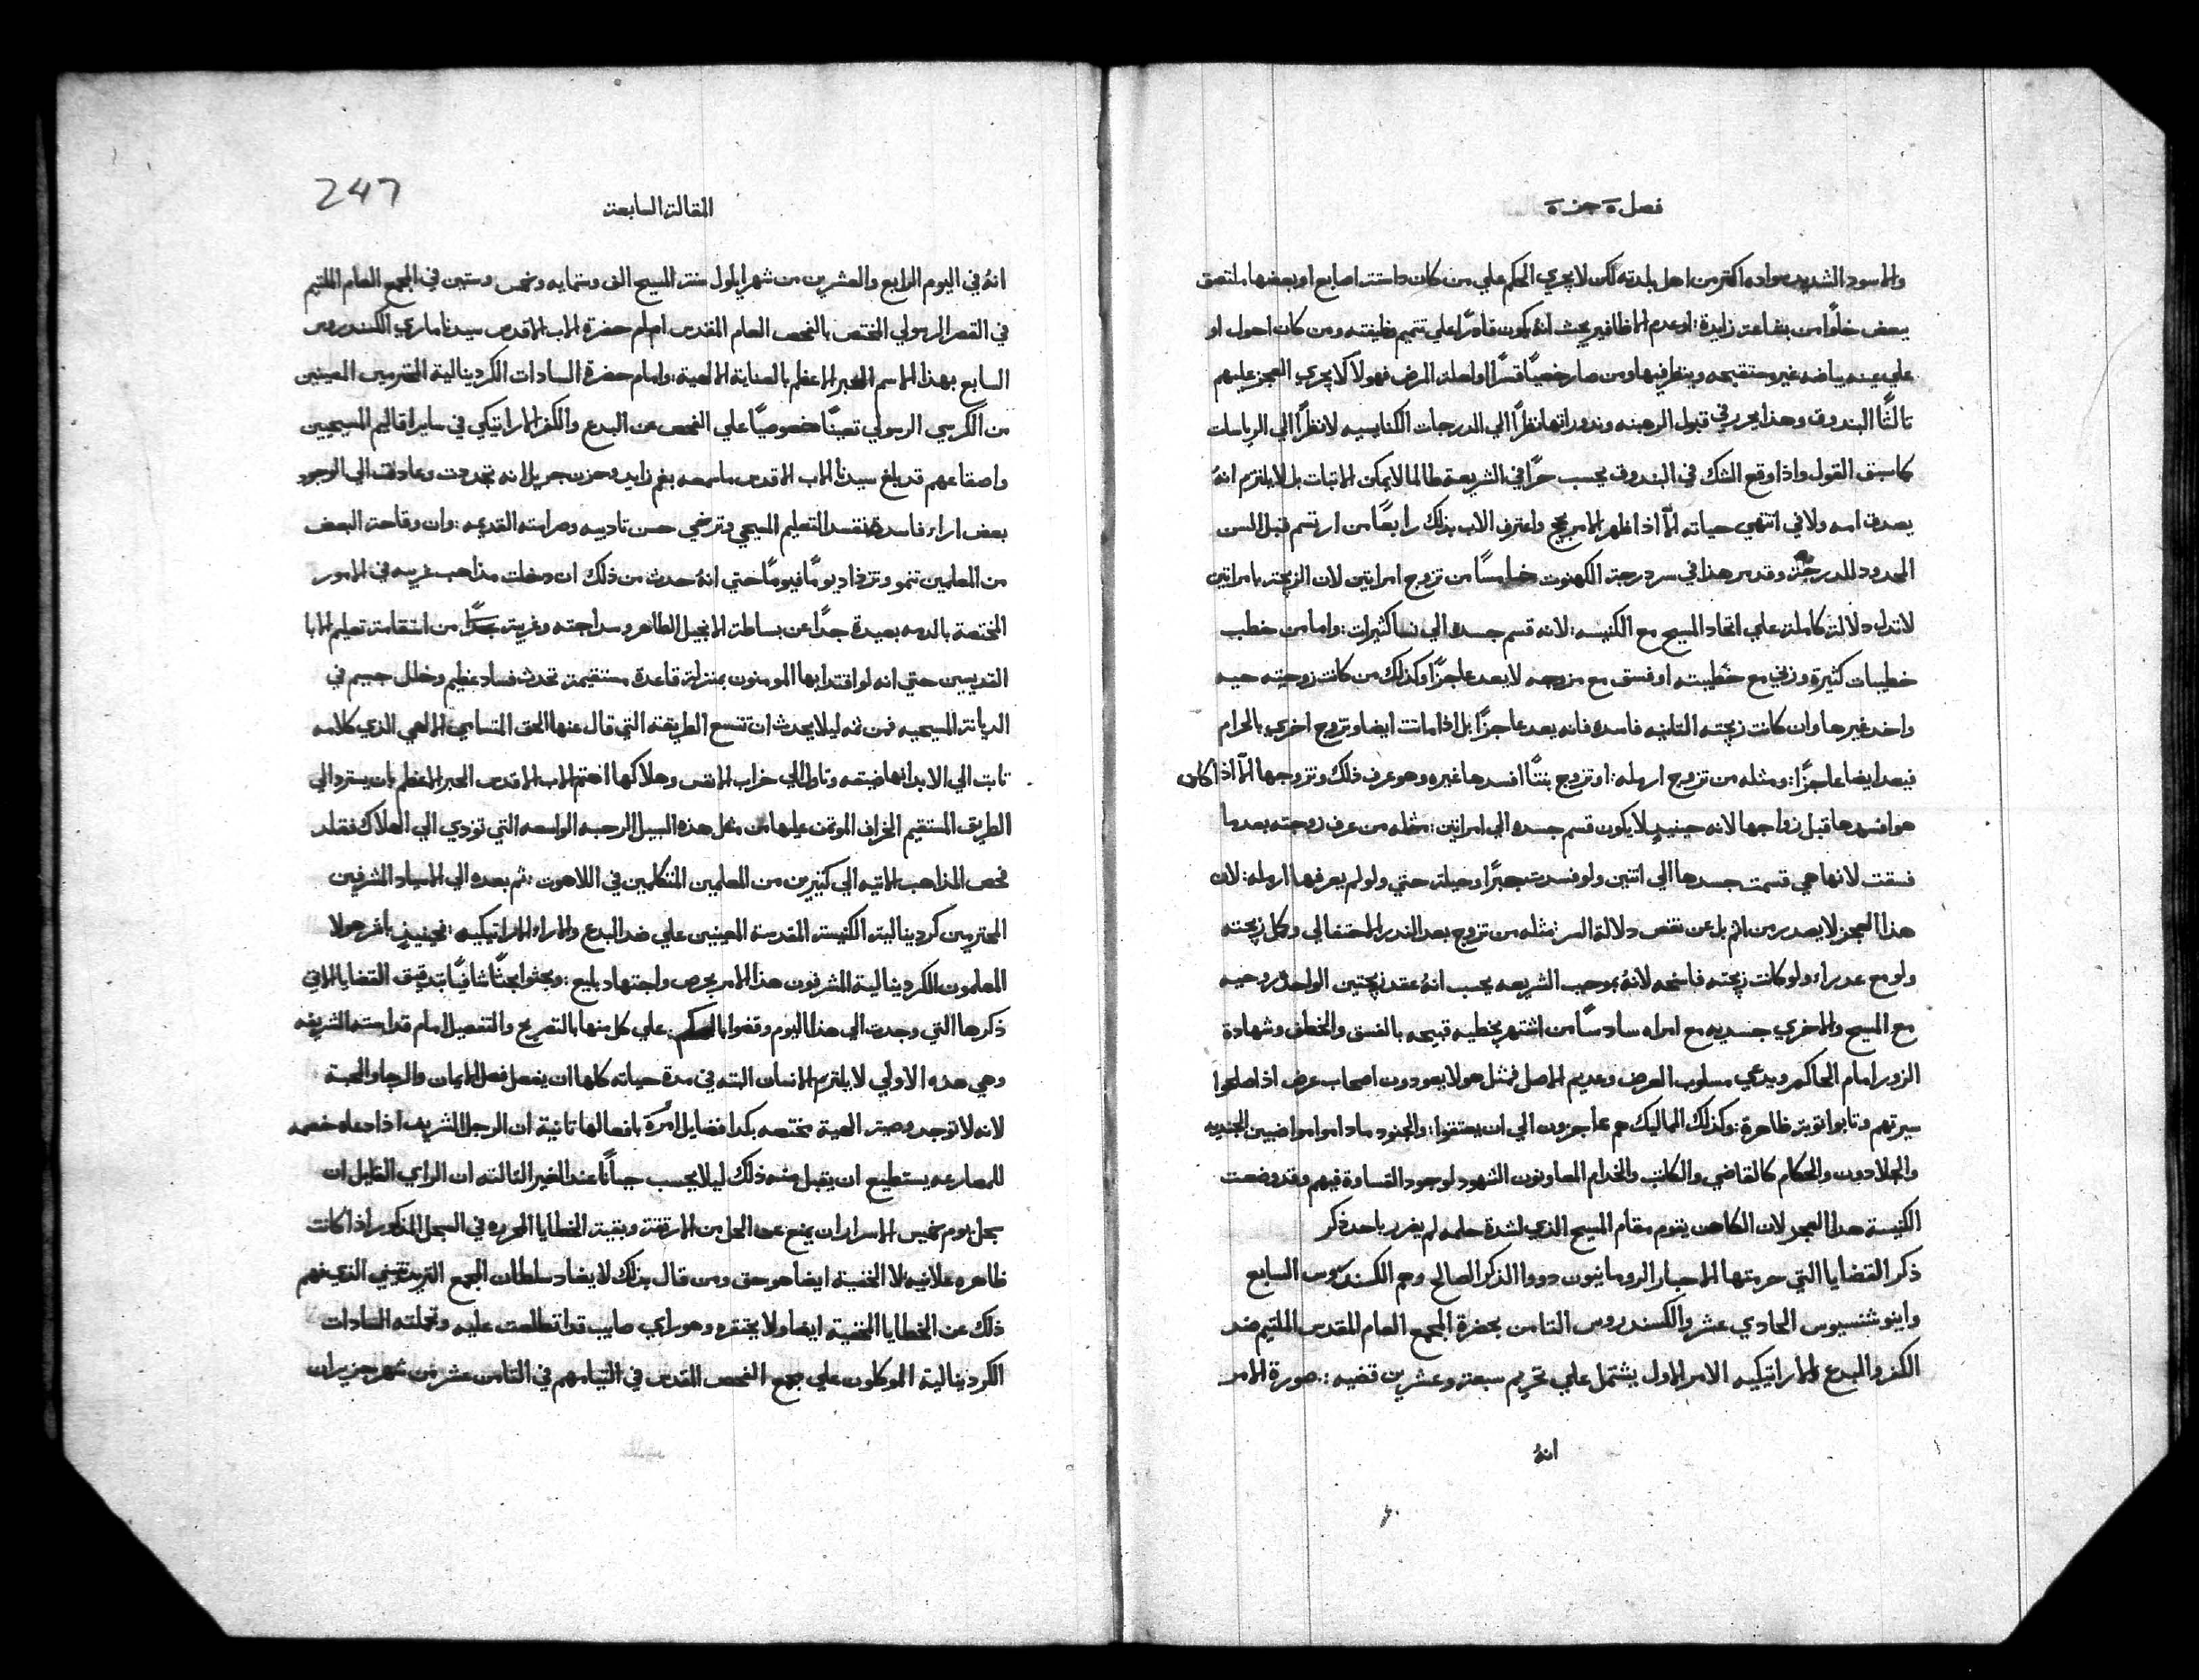 فصل ٥ جزء ٥
والاسود الشديد سواده اكثر من اهل بلدته لكن لا يجري الحكم علي من كان ذا ستت اصابع او بعضها ملتصق
ببعض خلوًا من بشاعة زايدة: او عدم الاظافير بحيث انهُ يكون قادرًا علي تتميم وظيفته ومن كان احول او
علي عينه بياضه غير مستقبحه وينظر فيها ومن صار خصيًا قسرًا او لعلة المرض فهولاَ لا يجري العجز عليهم
ثالثًا البندوق وهذا يحرر في قبول الرهبنه ونذوراتها نظرًا الي الدرجات الكنايسيه لا نظرًا الي الرياسات
كما سبق القول واذا وقع الشك في البندوق يحسب حرًا في الشريعة طالما لا يمكن الاتبات بل لا يلتزم انهُ
يصدق امه ولا في انتهي حياته الاّ اذا ظهر الامر بحجج واعترف الاب بذلك رابعًا من ارتسم قبل السن
المحدود للدرجة وقد مر هذا في سر درجة الكهنوت خامسًا من تزوج امراتين لان الزيجة بامراتين
لا تدل دلالة كاملة علي اتحاد المسيح مع الكنيسه: لانه قسم جسده الي نسا كثيرات: واما من خطب
خطيبات كثيرة وزني مع خطيبته او فسق مع مزوجه لا يعد عاجزًا وكذلك من كانت زوجته حيه
واخد غيرها وان كانت زيجته التانيه فاسده فانه يعد عاجزًا بل اذا ماتت ايضا وتزوج اخري بالحرام
فيعد ايضا عاجزًا: ومثله من تزوج ارمله: او تزوج بنتًا افسدها غيره وهو عرف ذلك وتزوجها الاّ اذا كان
هو افسدها قبل زواجها لانه حينيدٍ لا يكون قسم جسده الي امراتين: مثله من عرف زوجته بعد ما
فسقت لانها هي قسمت جسدها الي اتنين ولو فسدت جبرًا وحيلة حتي ولو لم يعرفها ارمله: لان
هذا العجز لا يصدر من اثم بل عن نقص دلالة السر: مثله من تزوج بعد الندر الاحتفالي وكل زيجته
ولو مع عدراء ولو كانت زيجته فاسخه لانهُ بموجب الشريعه يحسب انهُ عقد زيجتين الواحدة روحيه
مع المسيح والاخري جسديه مع امراه سادسًا من اشتهر بخطيه قبيحه بالفسق والخطف وشهادة
الزور امام الحاكم ويدعي مسلوب العرض وعديم الاصل فمثل هولا يعودون اصحاب عرض اذا اصلحوا
سيرتهم وتابوا توبة ظاهرة: وكذلك المماليك هم عاجزون الي ان يعتقوا: والجنود ما داموا مواضبين الجنديه
والجلادون والحكام كالقاضي والكاتب والخدام المعاونون الشهود لوجود القساوة فيهم وقد وضعت
الكنيسة هذا العجز لان الكاهن يقوم مقام المسيح الذي لشدة حلمه لم يضرر باحد ذكر
ذكر القضايا التي حرمتها الاحبار الرومانيون دووا الذكر الصالح وهم الكسندروس السابع
واينوشنسيوس الحادي عشر والكسندروس التامن بحضرة المجمع العام المقدس الملتيم ضد
الكفر والبدع الاراتيكيه الامر الاول يشتمل علي تحريم سبعة وعشرين قضيه: صورة الامر
انهُ
247
المقالة السابعة
انهُ في اليوم الرابع والعشرين من شهر ايلول سنة المسيح الف وستمايه وخمس وستين في المجمع العام الملتيم
في القصر الرسولي المختص بالفحص العام المقدس امام حضرة الاب الاقدس سيدنا ماري الكسندروس
السابع بهذا الاسم الحبر الاعظم بالعناية الالهية: وامام حضرة السادات الكردينالية المحترمين المعينين
من الكرسي الرسولي تعينًا خصوصيًا علي الفحص عن البدع والكفر الاراتيكي في ساير اقاليم المسيحيين
واصقاعهم قد بلغ سيدنا الاب الاقدس ما سمعه بغم زايد وحزن جزيل انه تجددت وعادت الي الوجود
بعض اراء فاسدة تفسد التعليم المسيحي وترخي حسن تاديبه وصرامته القديمه: وان وقاحة البعض
من المعلمين تنمو وتزداد يومًا فيومًا حتي انهُ حدث من ذلك ان دخلت مذاهب غريبه في الامور
المختصة بالدمه بعيدة جدًا عن بساطة الانجيل الطاهر وسداجته وغريبة جدًا من استقامة تعليم الابا
القديسين حتي انه لو اقتدا بها المومنون بمنزلة قاعدة مستقيمة تحدث فساد عظيم وخلل جسيم في
الديانة المسيحيه فمن ثمه ليلا يحدث ان تتسع الطريقة التي قال عنها الحق المتسامي الالهي الذي كلامه
تابت الي الابد انها ضيقه وتاول الي خراب الانفس وهلاكها اهتم الاب الاقدس الحبر الاعظم بان يسترد الي
الطريق المستقيم الخراف الموتمن عليها من مثل هذه السبيل الرحبه الواسعه التي تودي الي الهلاك فقلد
فحص المذاهب الاتيه الي كتيرين من المعلمين المتكلمين في اللاهوت: ثم بعده الي الاسياد المشرفين
المحترمين كردينالية الكنيسة المقدسة المعينين علي ضد البدع والاراء الاراتيكيه: فحينيذٍ باشر هولا
المعلمون الكردينالية المشرفون هذا الامر بحرص واجتهاد بليغ: وبحثوا بحثًا شافيًا بتدقيق القضايا الاتي
ذكرها التي وجدت الي هذا اليوم وقضوا بالحكم علي كل منها بالتصريح والتفصيل امام قداسته الشريفه
وهي هده الاولي لا يلتزم الانسان البته في مدة حياته كلها ان يفعل فعل الايمان والرجا والمحبة
لانه لا توجد وصية الهية مختصه بكدا فضايل امرة بافعالها تانية ان الرجل الشريف اذا دعاه خصمه
للمصارعه يستطيع ان يقبل منه ذلك ليلا يحسب جبانًا عند الغير التالته ان الراي القايل ان
سجل يوم خميس الاسرار ان يمنع عن الحل من الارتقة وبقية الخطايا المحرره في السجل المذكور اذا كانت
ظاهره علانيه لا الخفية ايضا هو حق ومن قال بذلك لا يضاد سلطان المجمع التريدنتيني الذي فهم
ذلك عن الخطايا المخفية ايضا ولا يحتقره وهو راي صايب قد اتطلعت عليه وتحملته السادات
الكردينالية الموكلون علي جمع الفحص المقدس في التيامهم في التامن عشر من شهر حزيران